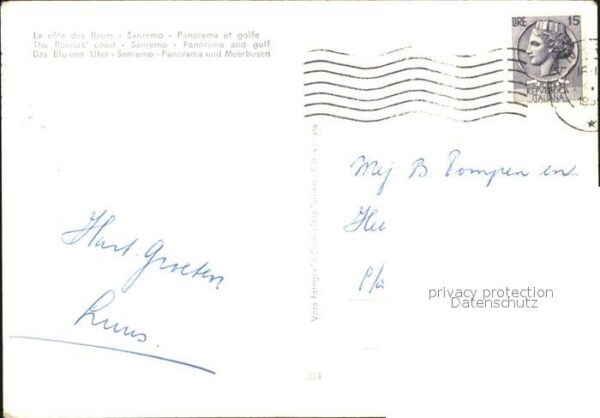 La côte des fleurs - Sanremo - Panorama et golfe
The flowers' coast - Sanremo - Panorama and gulf
Das Blumen Ufer - Sanremo - Panorama und Meerbusen
LIRE 15
REPUBBLICA
ITALIANA
Mej B Pompen en
p/a
privacy protection
Datenschutz
Hart. Groeten
Vera fotografia
324